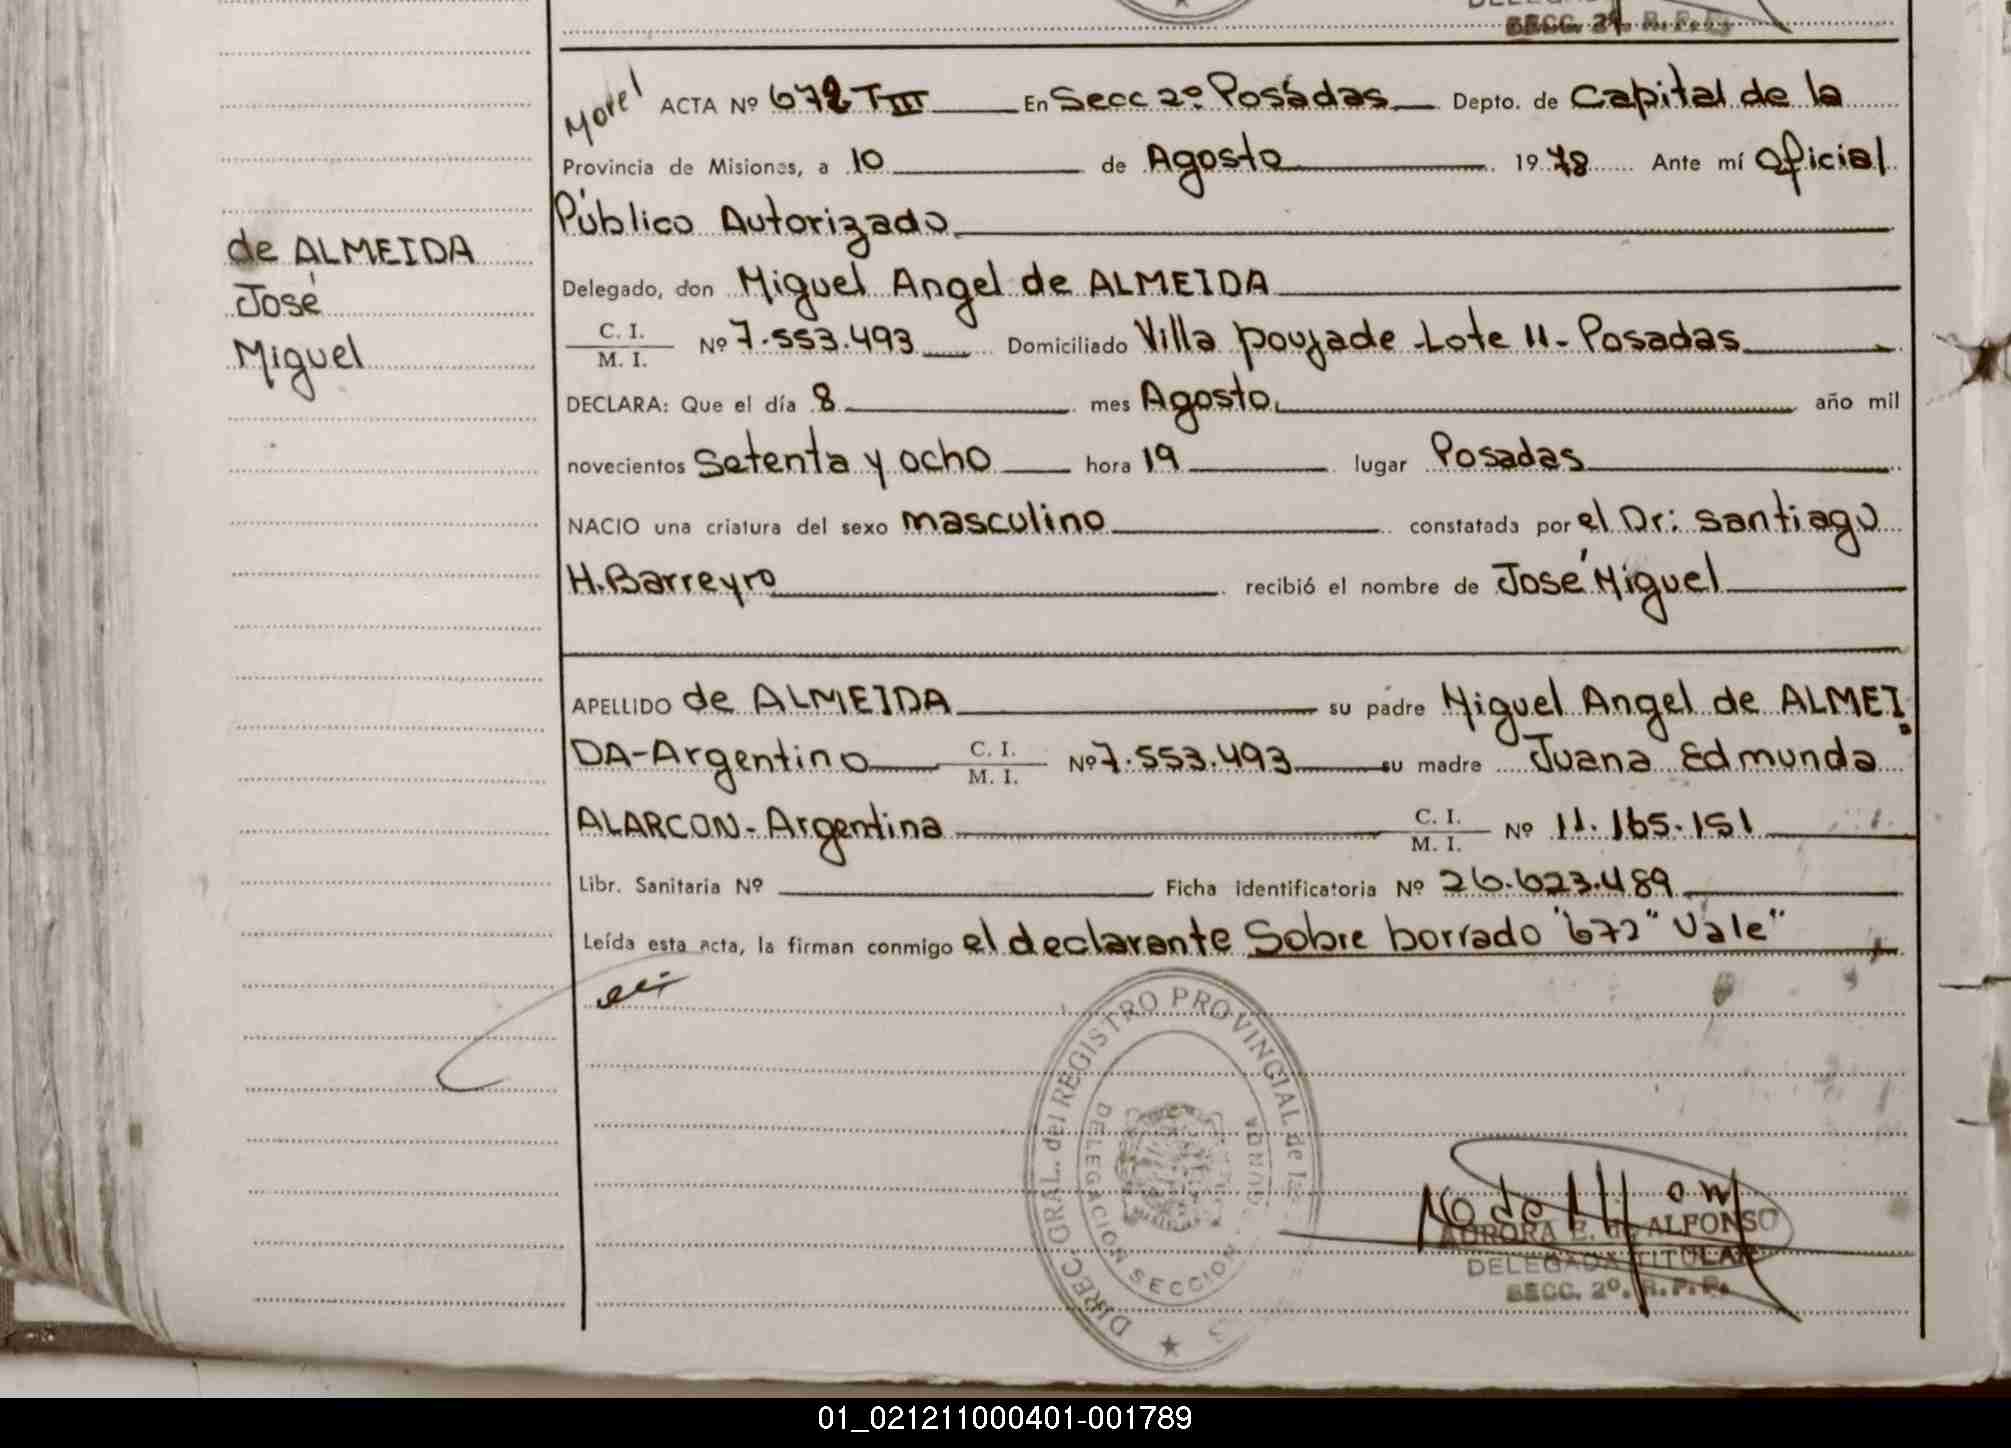 SECC. 2º. R. P. P.
Morel ACTA Nº 672 T III En Secc 2º Posadas Depto. de Capital de la
Provincia de Misiones, a 10 de Agosto 1978 Ante mí Oficial
Público Autorizado
de ALMEIDA
José
Miguel
Delegado, don Miguel Angel de ALMEIDA
C. I.
M. I. Nº 7.553.493 Domiciliado Villa Poujade -Lote 11- Posadas
DECLARA: Que el día 8 mes Agosto año mil
novecientos Setenta y ocho hora 19 lugar Posadas
NACIO una criatura del sexo masculino constatada por el Dr: Santiago
H. Barreyro recibió el nombre de José Miguel
APELLIDO de ALMEIDA su padre Miguel Angel de ALMEI
DA-Argentino C. I. M. I. Nº 7.553.493 su madre Juana Edmunda
ALARCON- Argentina C. I. M. I. Nº 11.165.151
Libr. Sanitaria Nº Ficha identificatoria Nº 26.623.489
Leída esta acta, la firman conmigo el declarante Sobre borrado "672" Vale"
DIREC. GRAL. del REGISTRO PROVINCIAL de las
DELEGACION SECCION
AURORA E. de ALFONSO
DELEGADA TITULAR
SECC. 2º. R. P. P.
01_021211000401-001789